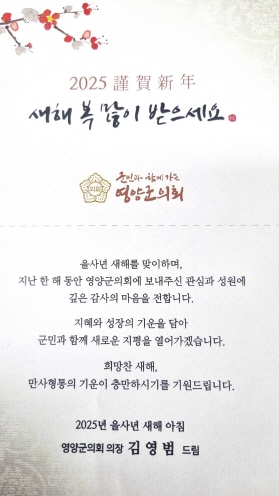 2025 謹賀新年
새해 복 많이 받으세요
의회
군민과 함께 가는
영양군의회
을사년 새해를 맞이하며,
지난 한 해 동안 영양군의회에 보내주신 관심과 성원에
깊은 감사의 마음을 전합니다.
지혜와 성장의 기운을 담아
군민과 함께 새로운 지평을 열어가겠습니다.
희망찬 새해,
만사형통의 기운이 충만하시기를 기원드립니다.
2025년 을사년 새해 아침
영양군의회 의장 김영범 드림